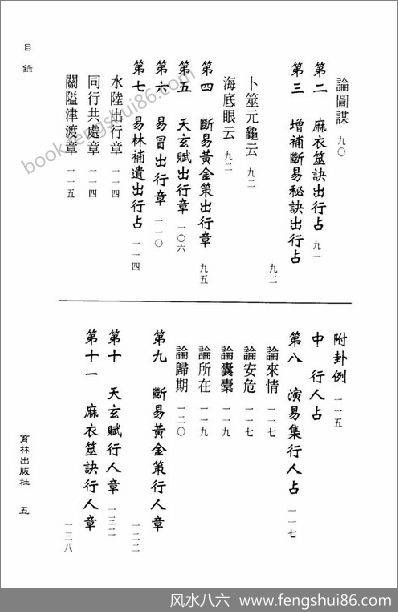 目錄
論圖謀 九〇
第二 麻衣筮訣出行占 九一
第三 增補斷易秘訣出行占 九二
卜筮元龜云 九二
海底眼云 九二
第四 斷易黃金策出行章 九五
第五 天玄賦出行章 一〇六
第六 易冒出行章 一一〇
第七 易林補遺出行占 一一四
水陸出行章 一一四
同行共處章 一一四
關隘津渡章 一一五
附卦例 一一五
中 行人占
第八 演易集行人占 一一七
論來情 一一七
論安危 一一七
論囊橐 一一九
論所在 一一九
論歸期 一二〇
第九 斷易黃金策行人章 一二二
第十 天玄賦行人章 一三二
第十一 麻衣筮訣行人章 一三八
育林出版社 五
风水八六 www.fengshui86.com